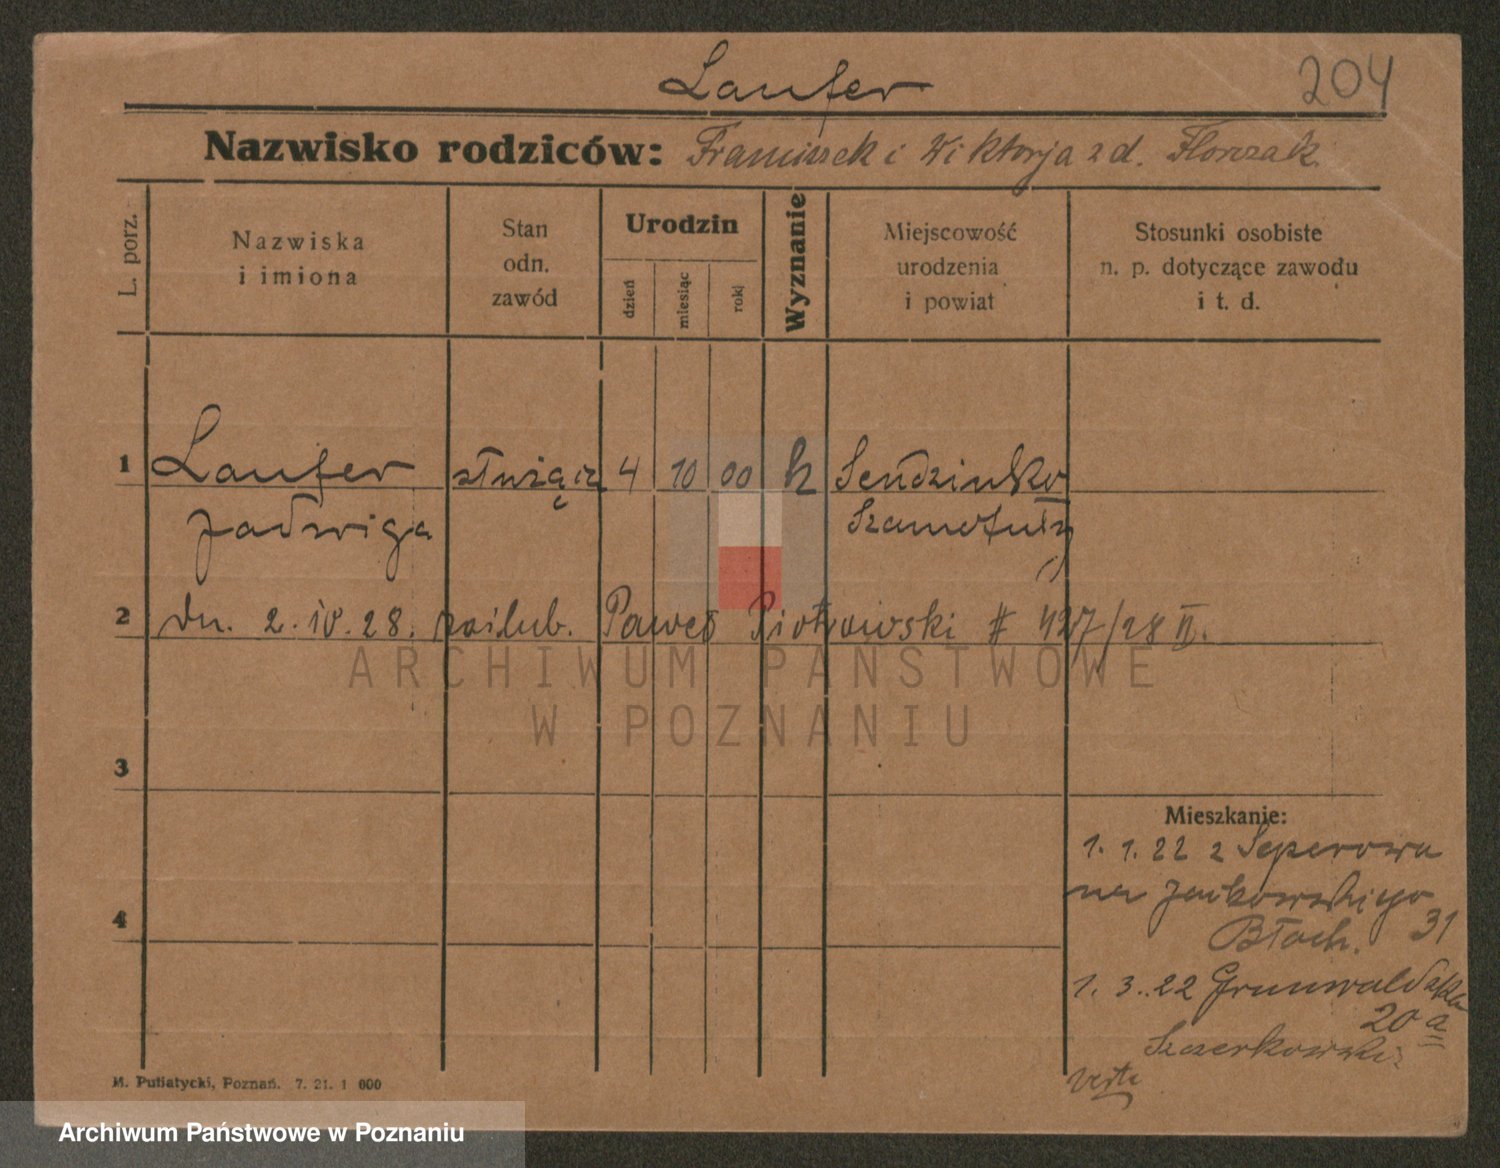 Laufer
204
Nazwisko rodziców: Franciszek i Wiktorja z d. Florczak.
L. porz.
Nazwiska
i imiona
Stan
odn.
zawód
Urodzin
dzień
miesiąc
rok
Wyznanie
Miejscowość
urodzenia
i powiat
Stosunki osobiste
n. p. dotyczące zawodu
i t. d.
1 Laufer służąca 4 10 00 k Sendzinko
Jadwiga Szamotuły
2 dn. 2.10.28. poślub. Paweł Piotrowski # 427/28 II.
ARCHIWUM PAŃSTWOWE
W POZNANIU
3
Mieszkanie:
1. 1. 22 z
na Jackowskiego
4
31
Błoch.
1. 3. 22 Grunwaldzka
20 a
verte
M. Putiatycki, Poznań. 7. 21. 1 000
Archiwum Państwowe w Poznaniu